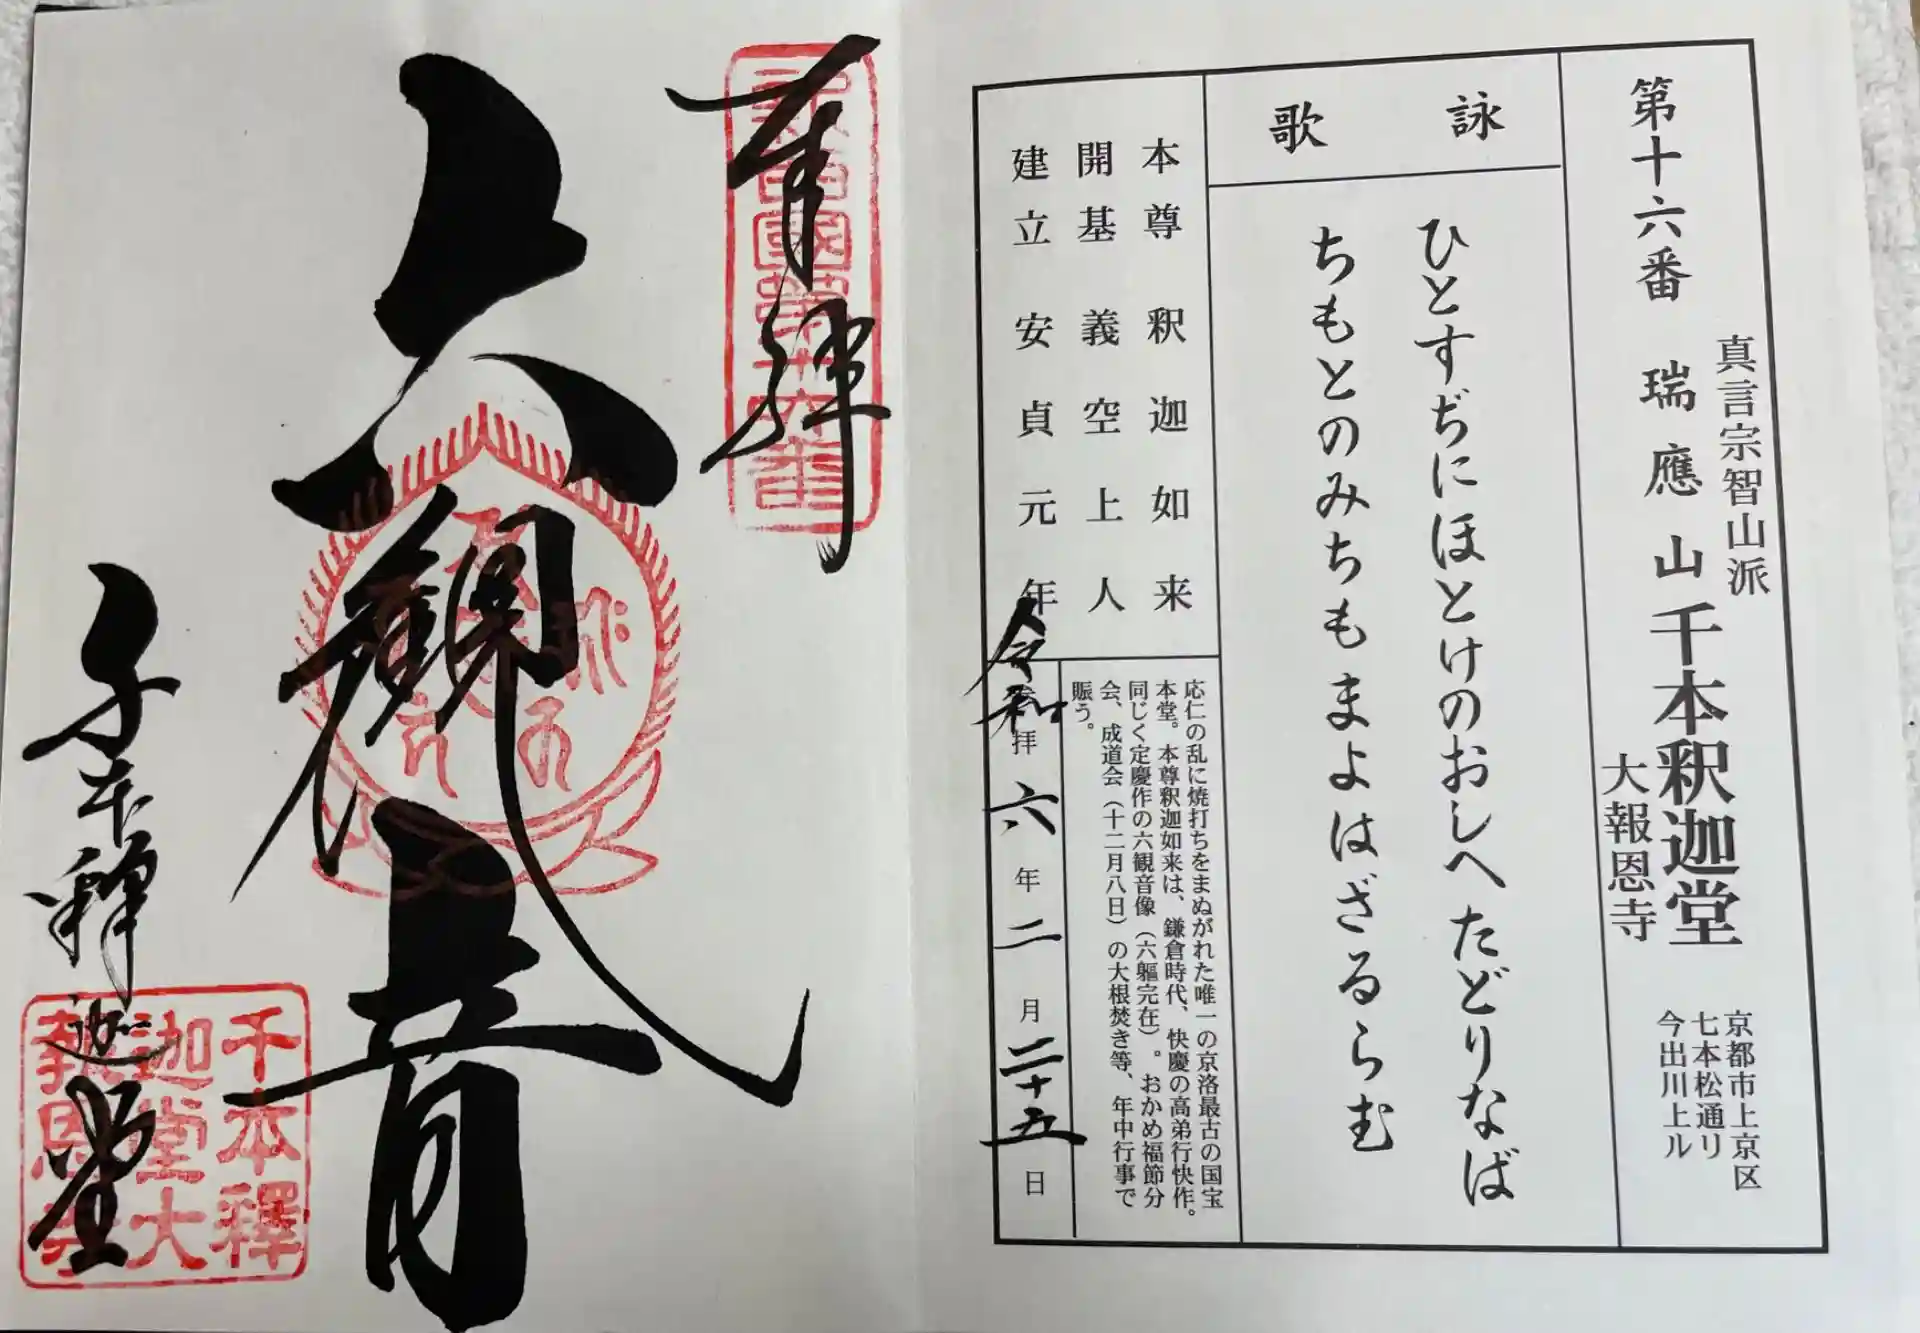 第十六番 瑞應山 千本釈迦堂
真言宗智山派
大報恩寺
京都市上京区
七本松通リ
今出川上ル
詠歌
ひとすぢにほとけのおしへたどりなば
ちもとのみちもまよはざるらむ
本尊 釈迦如来
開基 義空上人
建立 安貞元年
応仁の乱に焼打ちをまぬがれた唯一の京洛最古の国宝
本堂。本尊釈迦如来は、鎌倉時代、快慶の高弟行快作。
同じく定慶作の六観音像（六軀完在）。おかめ福節分
会、成道会（十二月八日）の大根焚き等、年中行事で
賑う。
令和 拝 六年二月二十五日
奉拝
新西國第十六番
六観音
千本釋迦堂
千本釋
迦堂大
報恩寺